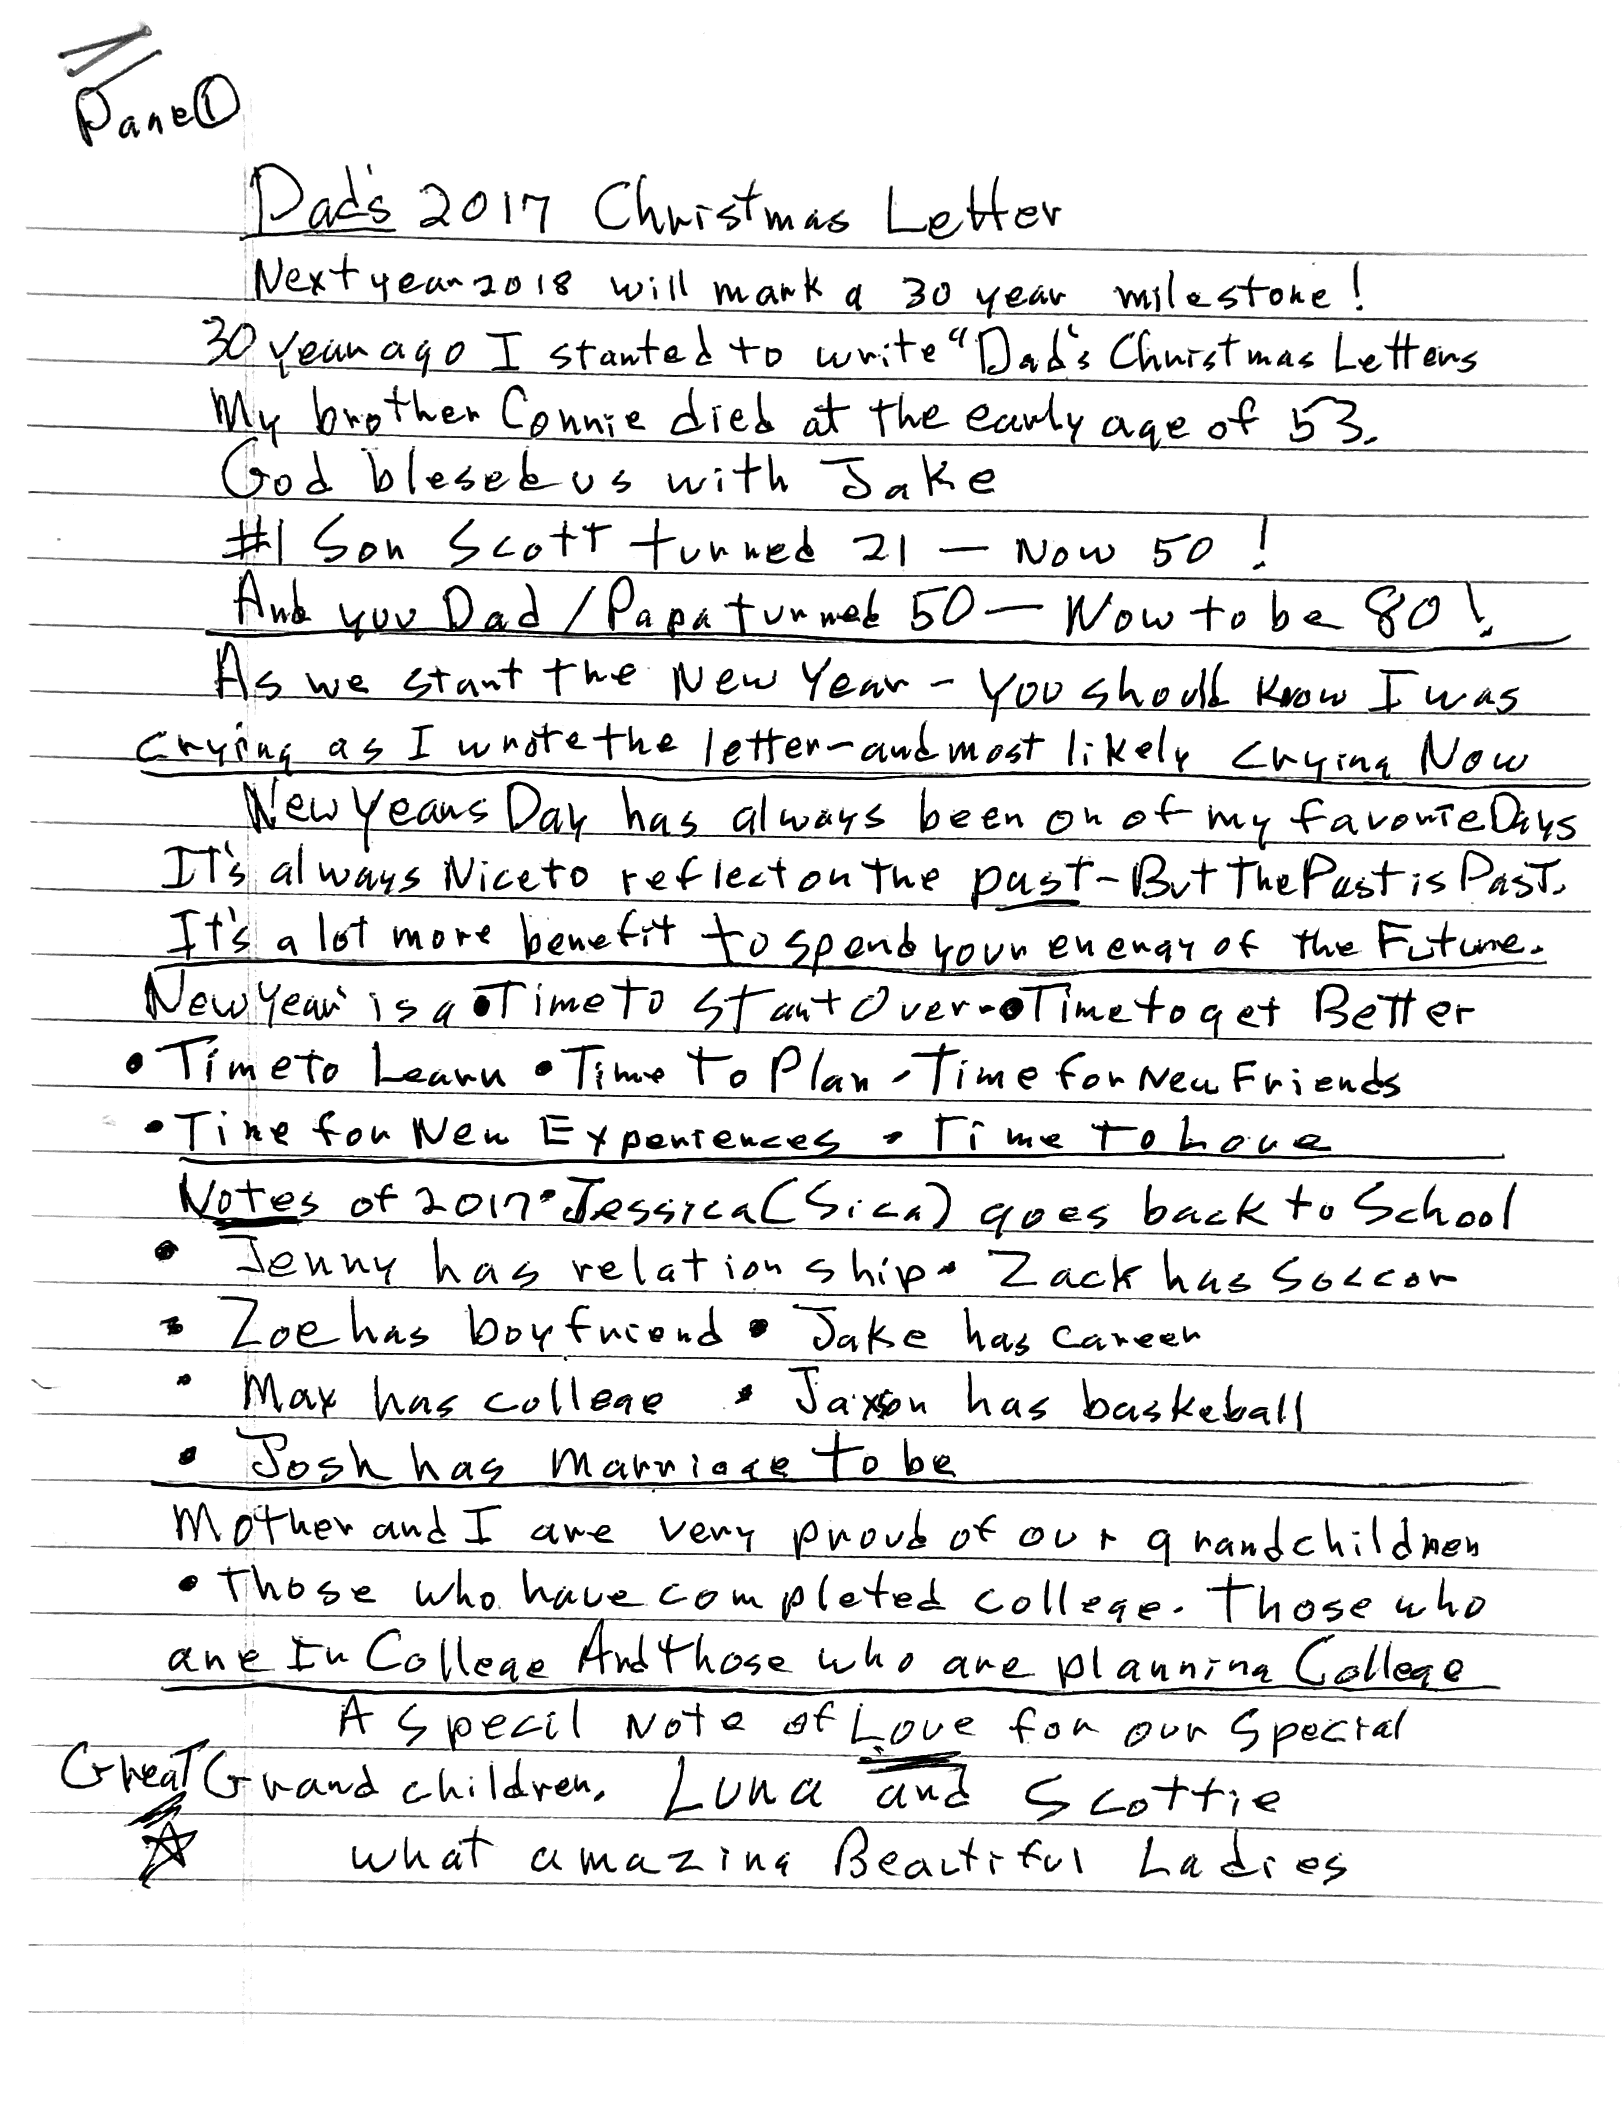 Page 1
Dad's 2017 Christmas Letter
Next year 2018 will mark a 30 year milestone!
30 year ago I started to write "Dad's Christmas Letters
My brother Connie died at the early age of 53.
God blesed us with Jake
#1 Son Scott turned 21 — Now 50!
And you Dad/Papa turned 50 — Now to be 80!
As we start the New Year - You should know I was
crying as I wrote the letter - and most likely crying Now
New Years Day has always been on of my favorite Days
It's always Nice to reflect on the past - But The Past is Past.
It's a lot more benefit to spend your energy of the Future.
New Year is a • Time To Start Over - • Time to get Better
• Time to Learn • Time To Plan • Time for New Friends
• Time for New Experiences • Time To Love
Notes of 2017 • Jessica (Sica) goes back to School
• Jenny has relationship • Zack has Soccor
• Zoe has boyfriend • Jake has career
• Max has college • Jaxson has baskeball
• Josh has Marriage to be
Mother and I are very proud of our grandchildren
• Those who have completed college. Those who
are In College And those who are planning College
A Specil Note of Love for our Special
Great Grand children. Luna and Scottie
what amazing Beautiful Ladies